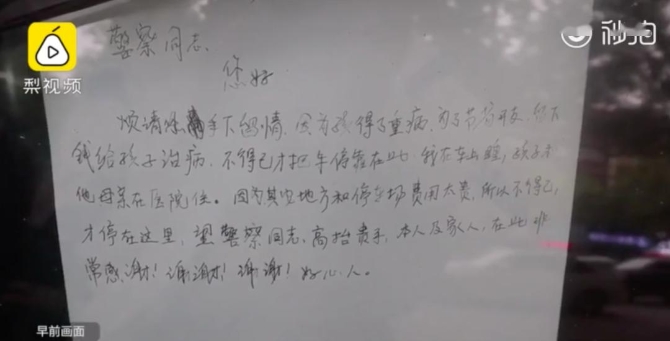 梨视频
秒拍
警察同志.
您好
烦请您手下留情.因为孩子得了重病.为了节省开支.留下
钱给孩子治病.不得已才把车停靠在此.我在车上睡,孩子和
他母亲在医院住。因为其它地方和停车场费用太贵.所以不得已,
才停在这里,望警察同志.高抬贵手,本人及家人,在此非
常感谢!谢谢!谢谢!好心人。
早前画面